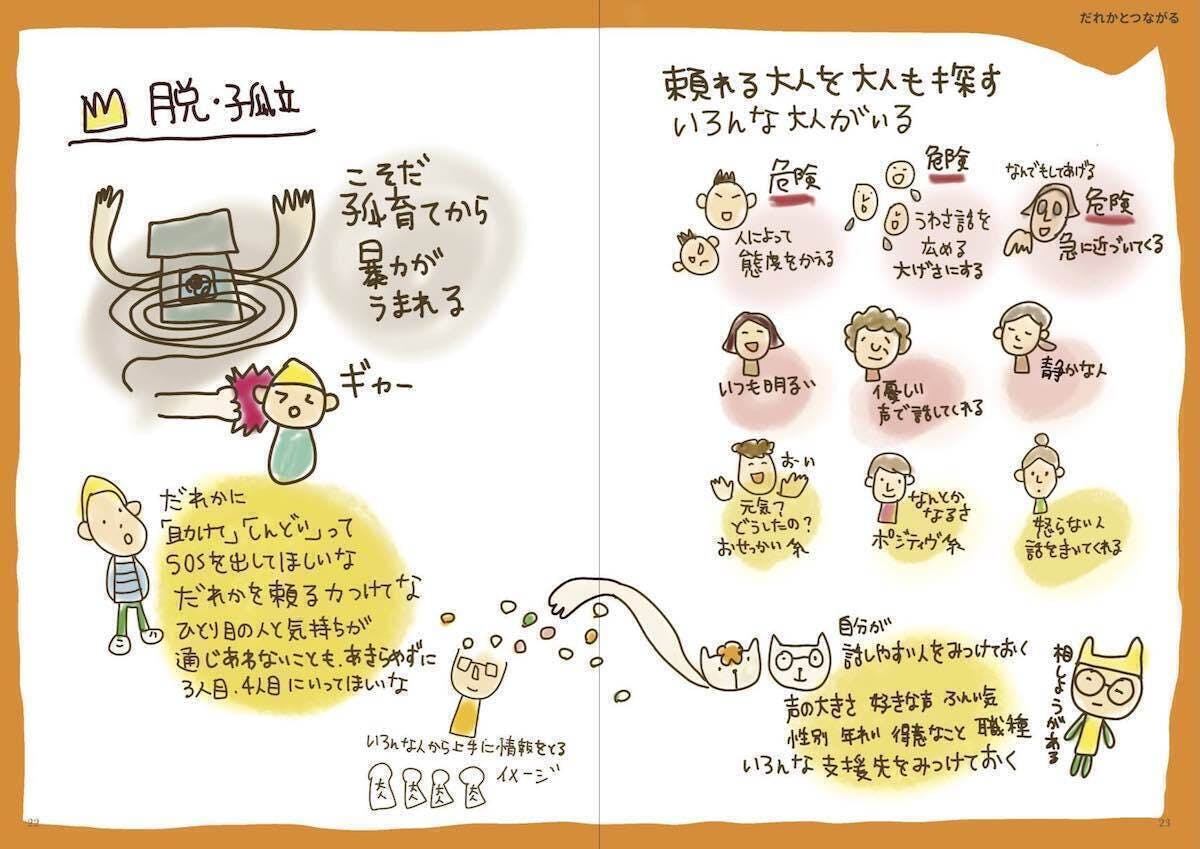 だれかとつながる
脱・子孤立
こそだ
孤育てから
暴力が
うまれる
ギャー
だれかに
「助けて」「しんどい」って
SOSを出してほしいな
だれかを頼る力つけてな
ひとり目の人と気持ちが
通じあわないことも、あきらめずに
3人目、4人目にいってほしいな
いろんな人から上手に情報をとる
イメージ
大人
大人
大人
大人
22
頼れる大人を大人も探す
いろんな大人がいる
危険
人によって
態度をかえる
危険
うわさ話を
広める
大げさにする
なんでもしてあげる
危険
急に近づいてくる
いつも明るい
優しい
声で話してくれる
静かな人
おーい
元気?
どうしたの?
おせっかい系
なんとか
なるさ
ポジティヴ系
怒らない人
話をきいてくれる
自分が
話しやすい人をみつけておく
声の大きさ 好きな声 ふんい気
性別 年れい 得意なこと 職種
いろんな支援先をみつけておく
相しょうがある
23